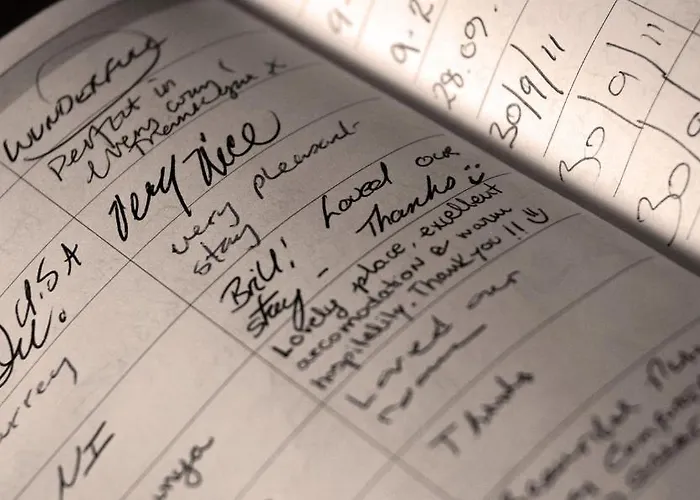 WUNDERFULL
Perfect in
every way!
Thankyou x
Very Nice
very pleasant
stay
Brill! Loved our
stay - Thanks
Lovely place, excellent
accomodation & warm
hospitality. Thankyou!!
Loved our
Thanks
U.S.A
NI
9.2
28.09.
30/9/11
30/9/11
30/9